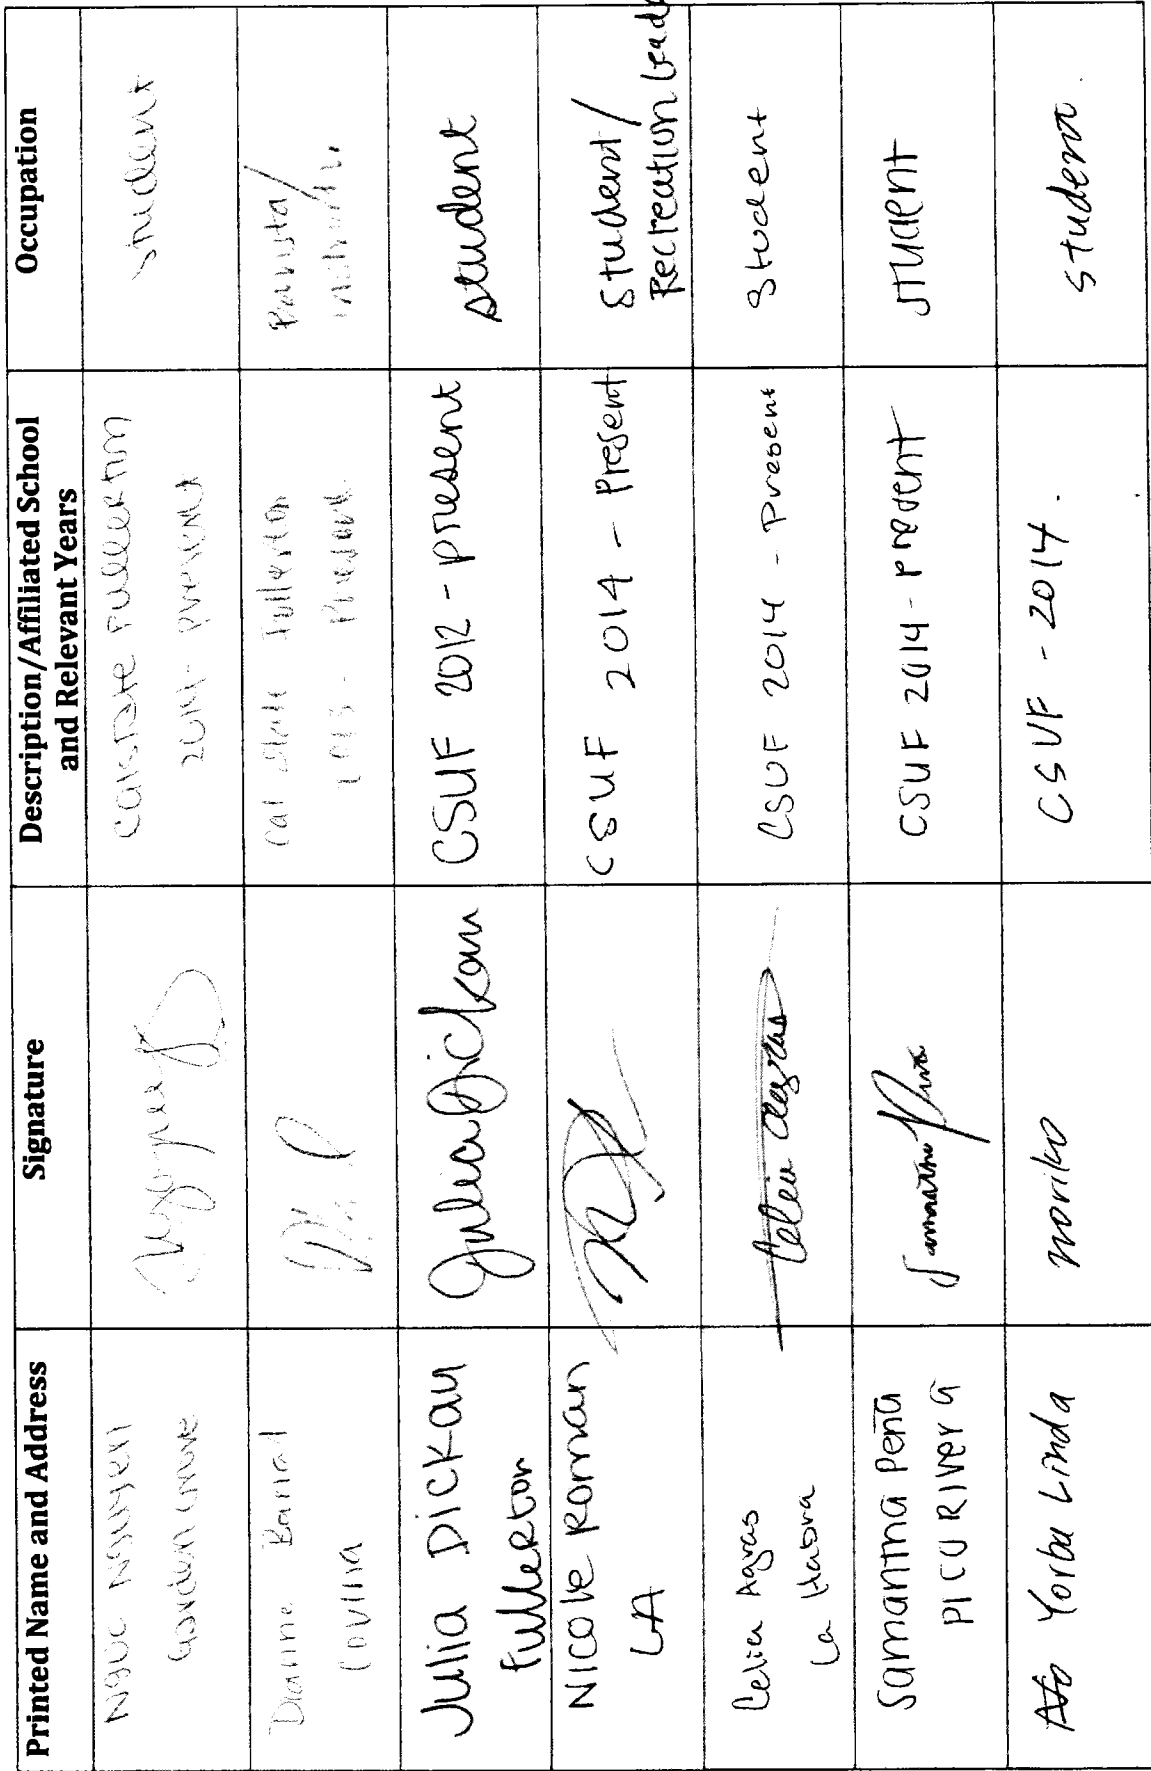 Printed Name and Address
Signature
Description/Affiliated School
and Relevant Years
Occupation
Ngoc Nguyen
Garden Grove
Calstate Fullerton
2014 - present
student
Dianne
Covina
Cal State Fullerton
- Present
Barista/
Julia Dickau
Fullerton
Julia Dickau
CSUF 2012 - present
student
Nicole Roman
LA
CSUF 2014 - Present
Student/
Recreation Leader
Celia Agras
La Habra
Celia Agras
CSUF 2014 - Present
Student
Samantha Peña
Pico Rivera
Samantha Peña
CSUF 2014 - present
student
Yorba Linda
noriko
CSUF - 2014.
student.